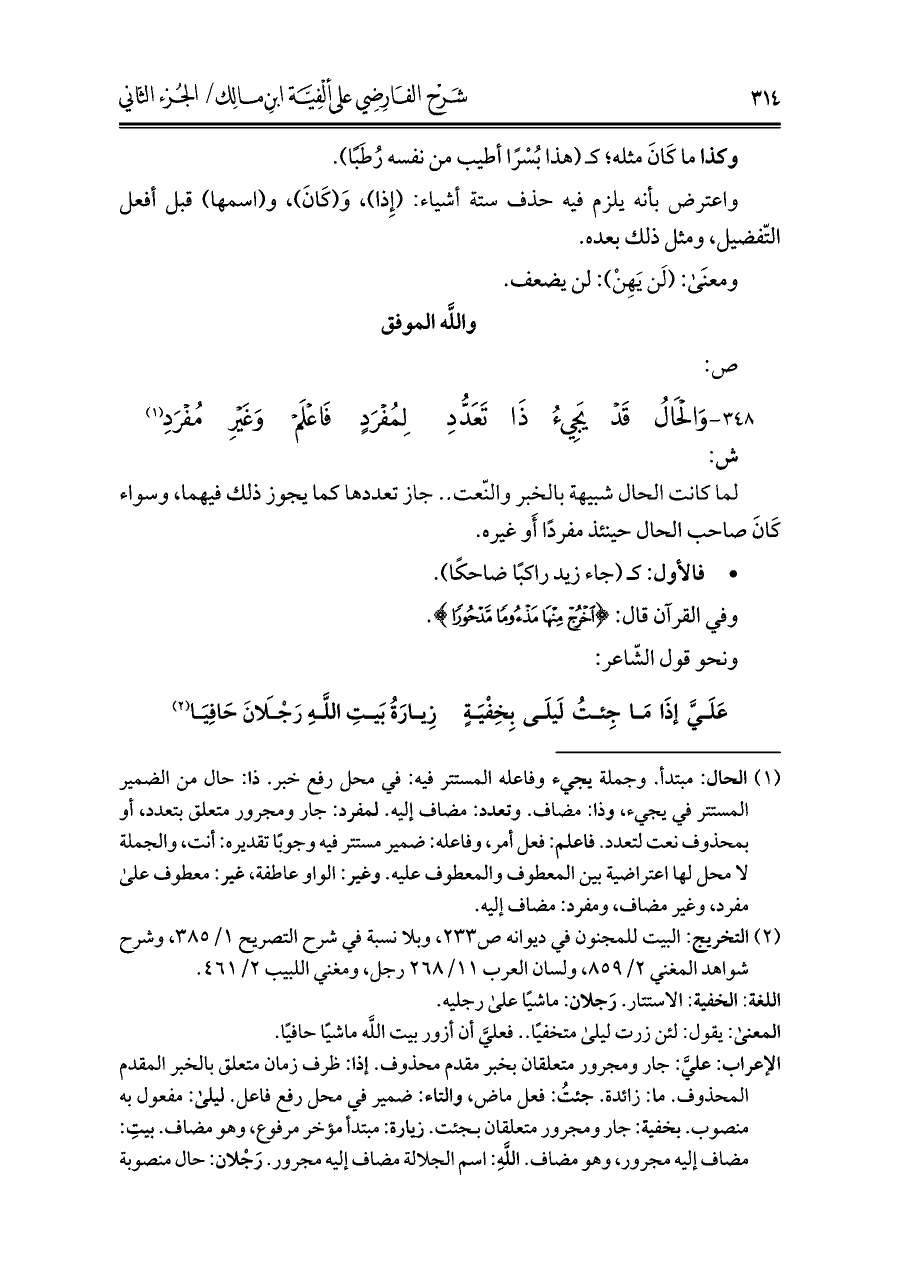 ٣١٤ شَرْح الفَارِضِي على أَلْفِيَّة ابن مالِك/ الجُزء الثاني
وكذا ما كَانَ مثله؛ كـ (هذا بُسْرًا أطيب من نفسه رُطَبًا).
واعترض بأنه يلزم فيه حذف ستة أشياء: (إِذا)، وَ(كَانَ)، و(اسمها) قبل أفعل
التّفضيل، ومثل ذلك بعده.
ومعنَىٰ: (لَن يَهِنْ): لن يضعف.
واللَّه الموفق
ص:
٣٤٨-وَالْحَالُ قَدْ يَجِيءُ ذَا تَعَدُّدِ لِمُفْرَدٍ فَاعْلَمْ وَغَيْرِ مُفْرَدِ(١)
ش:
لما كانت الحال شبيهة بالخبر والنّعت.. جاز تعددها كما يجوز ذلك فيهما، وسواء
كَانَ صاحب الحال حينئذ مفردًا أَو غيره.
• فالأول: كـ (جاء زيد راكبًا ضاحكًا).
وفي القرآن قال: ﴿ٱخْرُجْ مِنْهَا مَذْءُومًا مَّدْحُورًا﴾.
ونحو قول الشّاعر:
عَلَـيَّ إذَا مَـا جِئـتُ لَيلَـى بِخِفْيَـةٍ زِيـارَةُ بَيـتِ اللَّـهِ رَجْـلَانَ حَافِيَـا(٢)
(١) الحال: مبتدأ. وجملة يجيء وفاعله المستتر فيه: في محل رفع خبر. ذا: حال من الضمير
المستتر في يجيء، وذا: مضاف. وتعدد: مضاف إليه. لمفرد: جار ومجرور متعلق بتعدد، أو
بمحذوف نعت لتعدد. فاعلم: فعل أمر، وفاعله: ضمير مستتر فيه وجوبًا تقديره: أنت، والجملة
لا محل لها اعتراضية بين المعطوف والمعطوف عليه. وغير: الواو عاطفة، غير: معطوف علىٰ
مفرد، وغير مضاف، ومفرد: مضاف إليه.
(٢) التخريج: البيت للمجنون في ديوانه ص٢٣٣، وبلا نسبة في شرح التصريح ١/ ٣٨٥، وشرح
شواهد المغني ٢/ ٨٥٩، ولسان العرب ١١/ ٢٦٨ رجل، ومغني اللبيب ٢/ ٤٦١.
اللغة: الخفية: الاستتار. رَجلان: ماشيًا علىٰ رجليه.
المعنىٰ: يقول: لئن زرت ليلىٰ متخفيًا.. فعليَّ أن أزور بيت اللَّه ماشيًا حافيًا.
الإعراب: عليَّ: جار ومجرور متعلقان بخبر مقدم محذوف. إذا: ظرف زمان متعلق بالخبر المقدم
المحذوف. ما: زائدة. جئتُ: فعل ماض، والتاء: ضمير في محل رفع فاعل. ليلىٰ: مفعول به
منصوب. بخفية: جار ومجرور متعلقان بـجئت. زيارة: مبتدأ مؤخر مرفوع، وهو مضاف. بيتِ:
مضاف إليه مجرور، وهو مضاف. اللَّهِ: اسم الجلالة مضاف إليه مجرور. رَجْلان: حال منصوبة